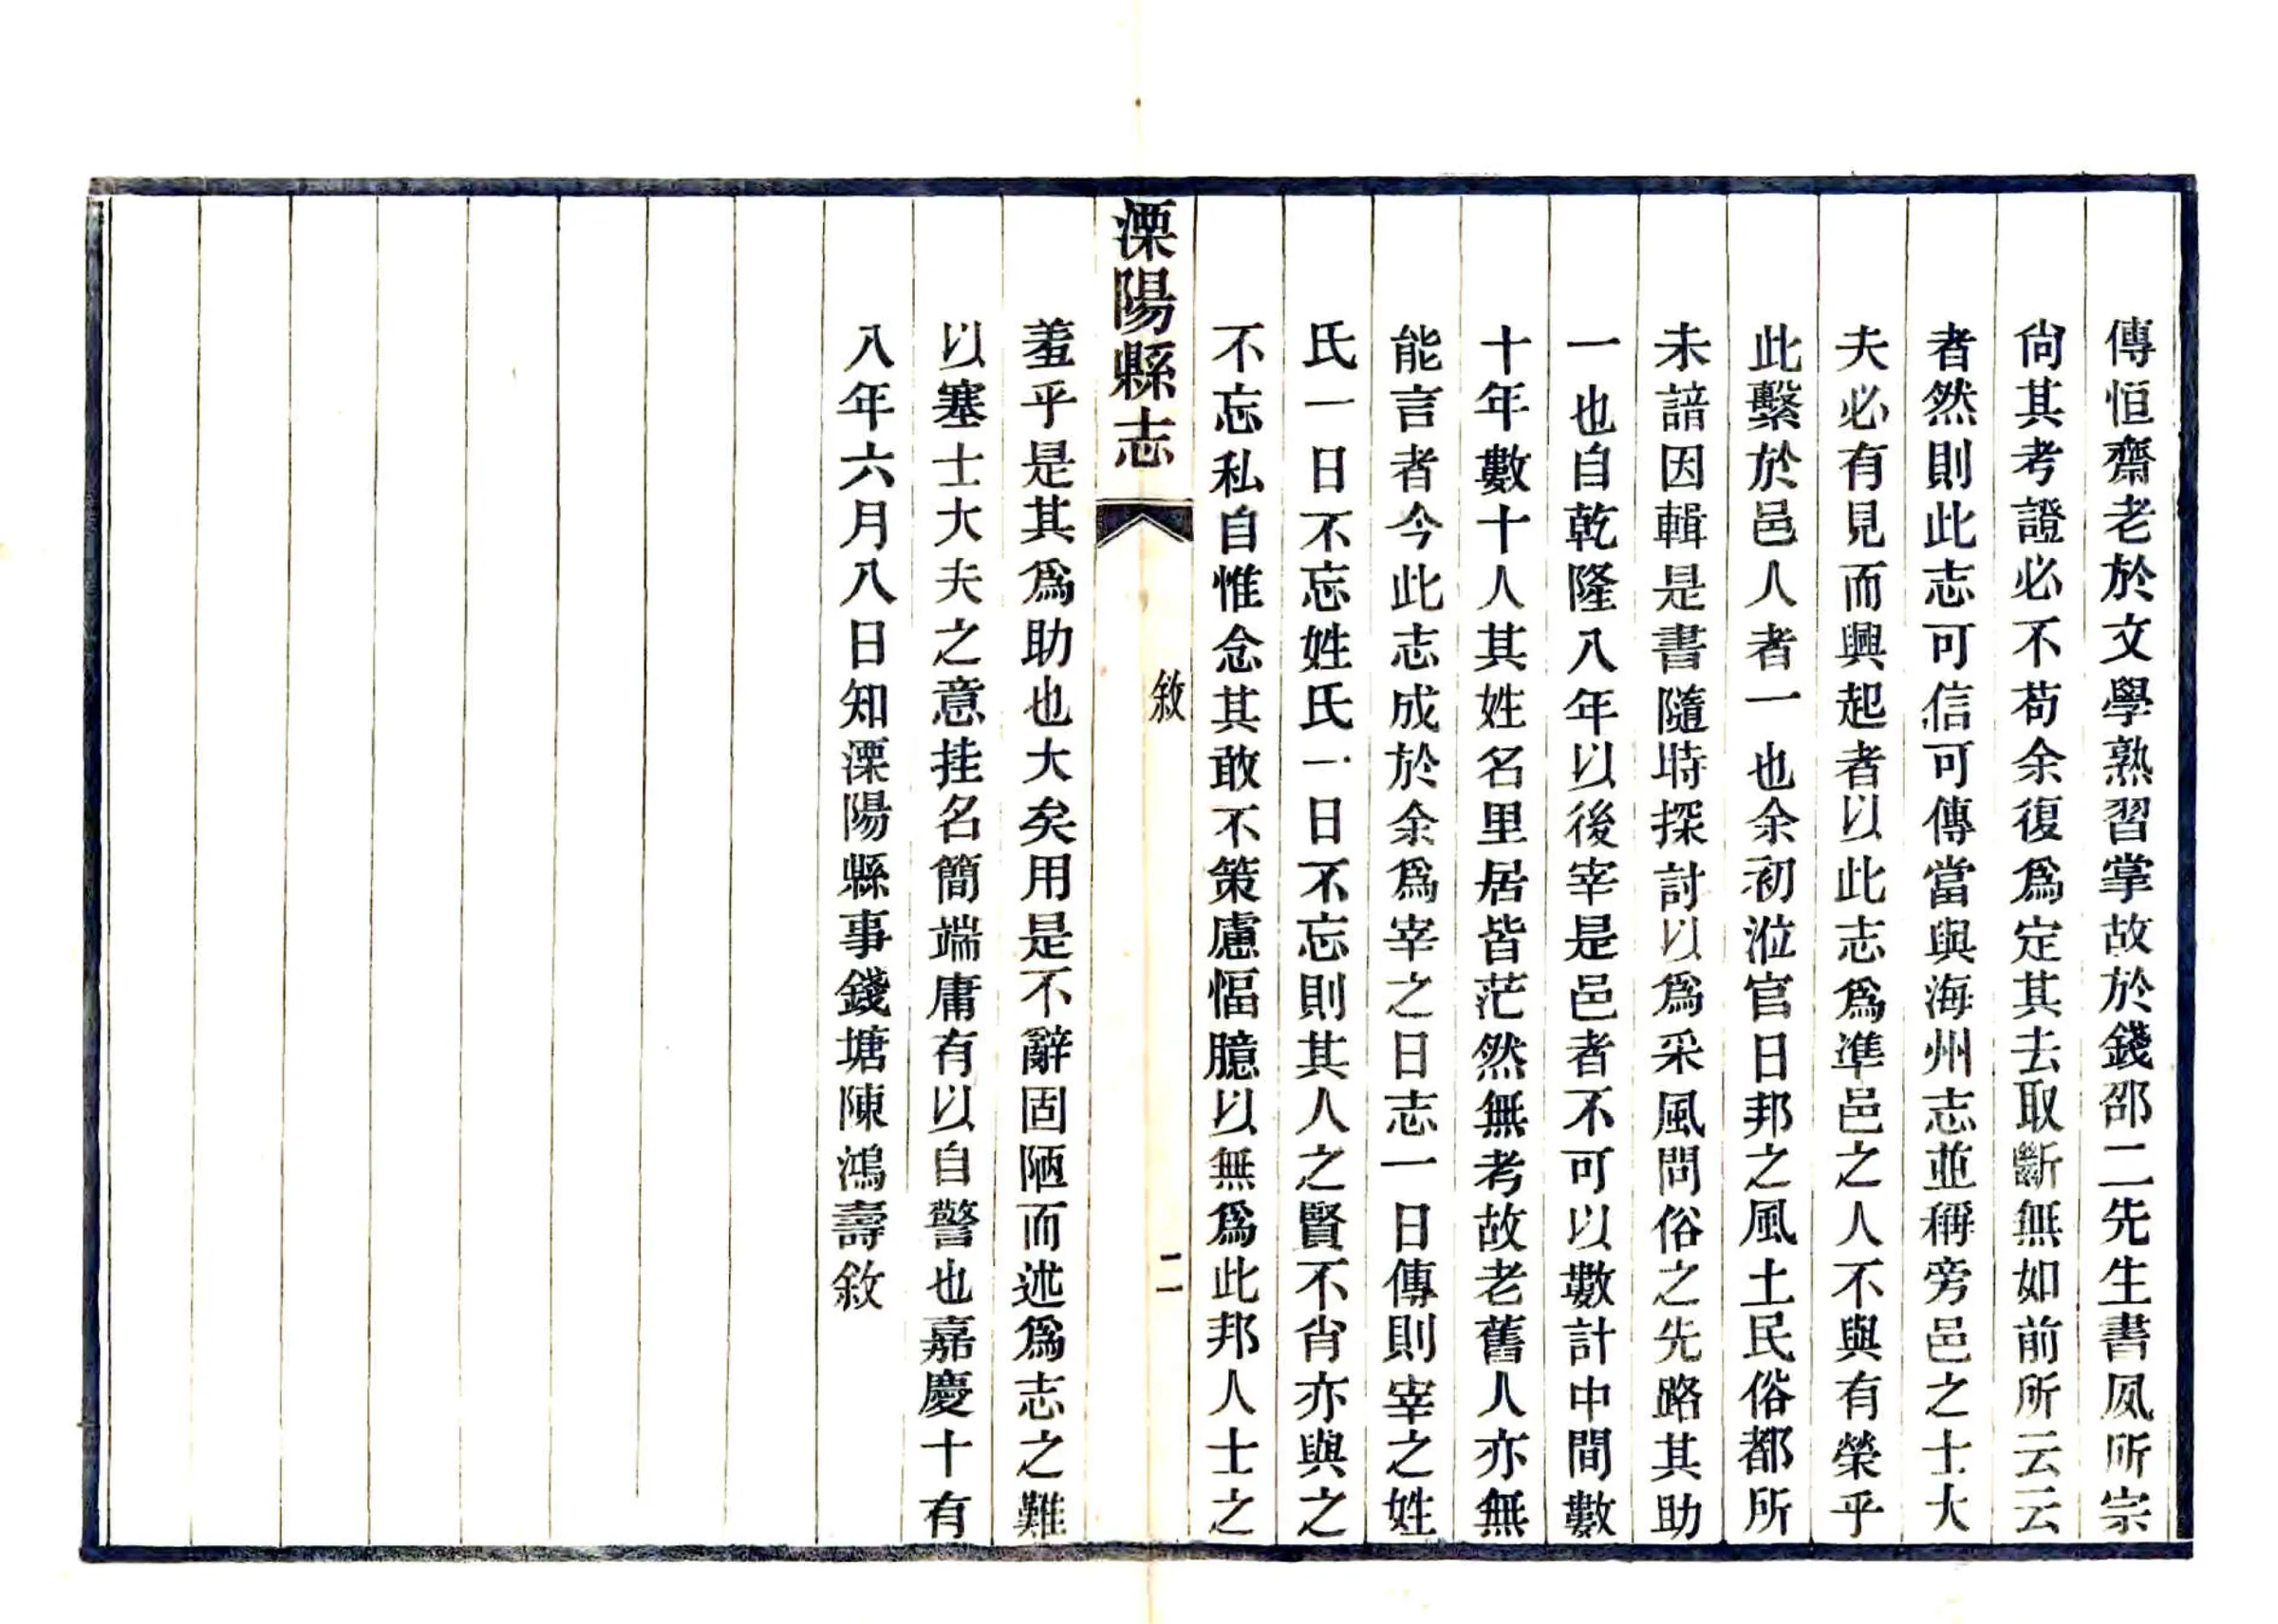 傳恒齋老於文學熟習掌故於錢邵二先生書夙所宗
尙其考證必不苟余復爲定其去取斷無如前所云云
者然則此志可信可傳當與海州志並稱旁邑之士大
夫必有見而興起者以此志爲準邑之人不與有榮乎
此繫於邑人者一也余初涖官日邦之風土民俗都所
未諳因輯是書隨時探討以爲采風問俗之先路其助
一也自乾隆八年以後宰是邑者不可以數計中間數
十年數十人其姓名里居皆茫然無考故老舊人亦無
能言者今此志成於余爲宰之日志一日傳則宰之姓
氏一日不忘姓氏一日不忘則其人之賢不肖亦與之
不忘私自惟念其敢不策慮愊臆以無爲此邦人士之
溧陽縣志
敘
二
羞乎是其爲助也大矣用是不辭固陋而述爲志之難
以塞士大夫之意挂名簡端庸有以自警也嘉慶十有
八年六月八日知溧陽縣事錢塘陳鴻壽敘